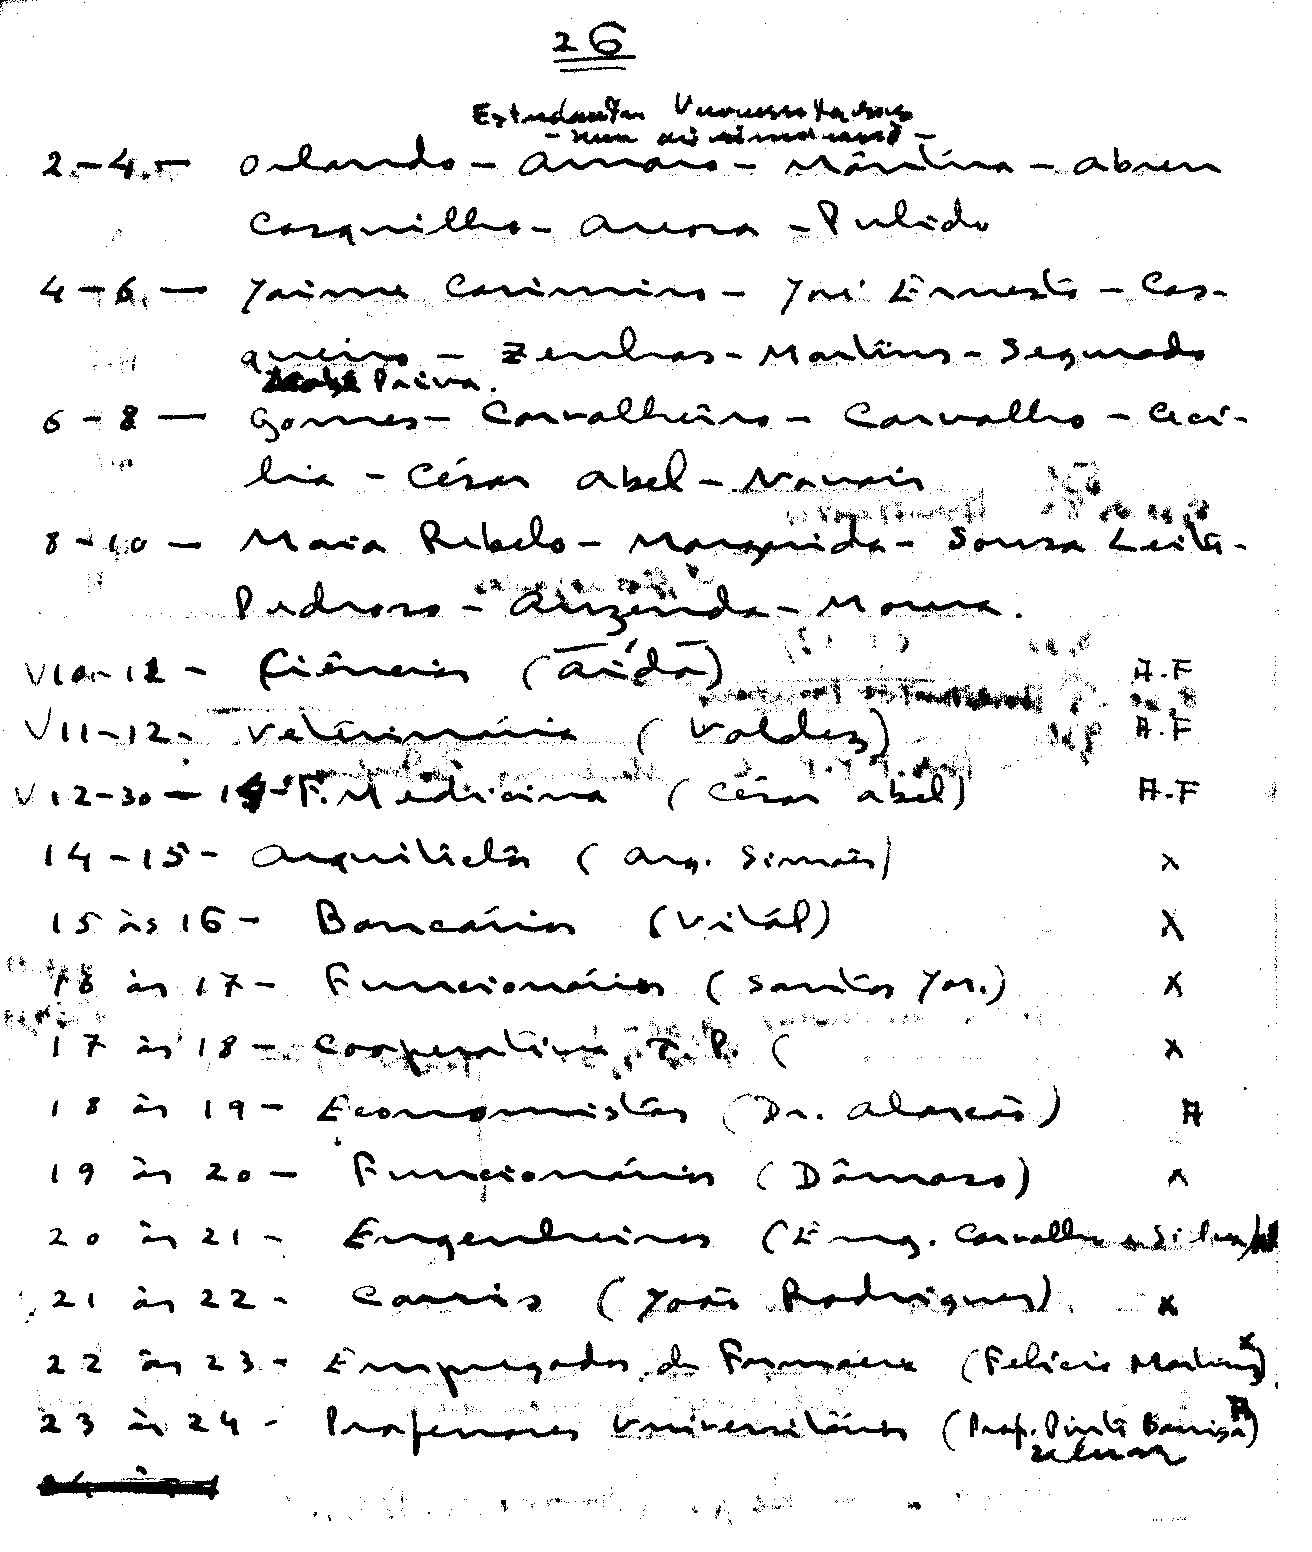 26
Estudantes
2-4 - Orlando - Amaro - Martina - Abreu
Casquilho - Aurora - Pulido
4-6 - Jaime Casimiro - José Ernesto - Cas-
queiro - Zenhas - Martins - Segurado
Paiva.
6-8 - Gomes - Carvalheiro - Carvalho - Ceci-
lia - César Abel - Novais
8-10 - Maia Rebelo - Margarida - Souza Leitã-
Pedroso - Auzenda - Moura.
V10-12 - Ciências (Aida) A.F
V11-12- Veterinária (Valdez) A.F
V12-30-14-F. Medicina (César Abel) A.F
14-15- Arquitectos (Arq. Simões) x
15 às 16 - Bancários (Vitál) x
16 às 17- Funcionários (Santos Jor.) x
17 às 18 - Cooperativa T.P. ( x
18 às 19 - Economistas (Dr. Alarcão) A
19 às 20 - Funcionários (Dâmaso) x
20 às 21 - Engenheiros (Eng. Carvalho e Silva)
21 às 22 - Carris (João Rodrigues) x
22 às 23 - Empregados de Farmacia (Felicio Martins) x
23 às 24 - Professores Universitários (Prof. Pinto Barriga) A